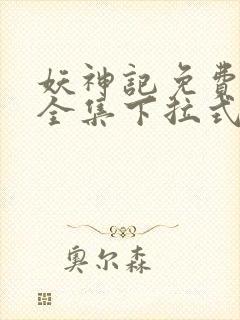 妖神記免費
全集下拉式
奥尔森